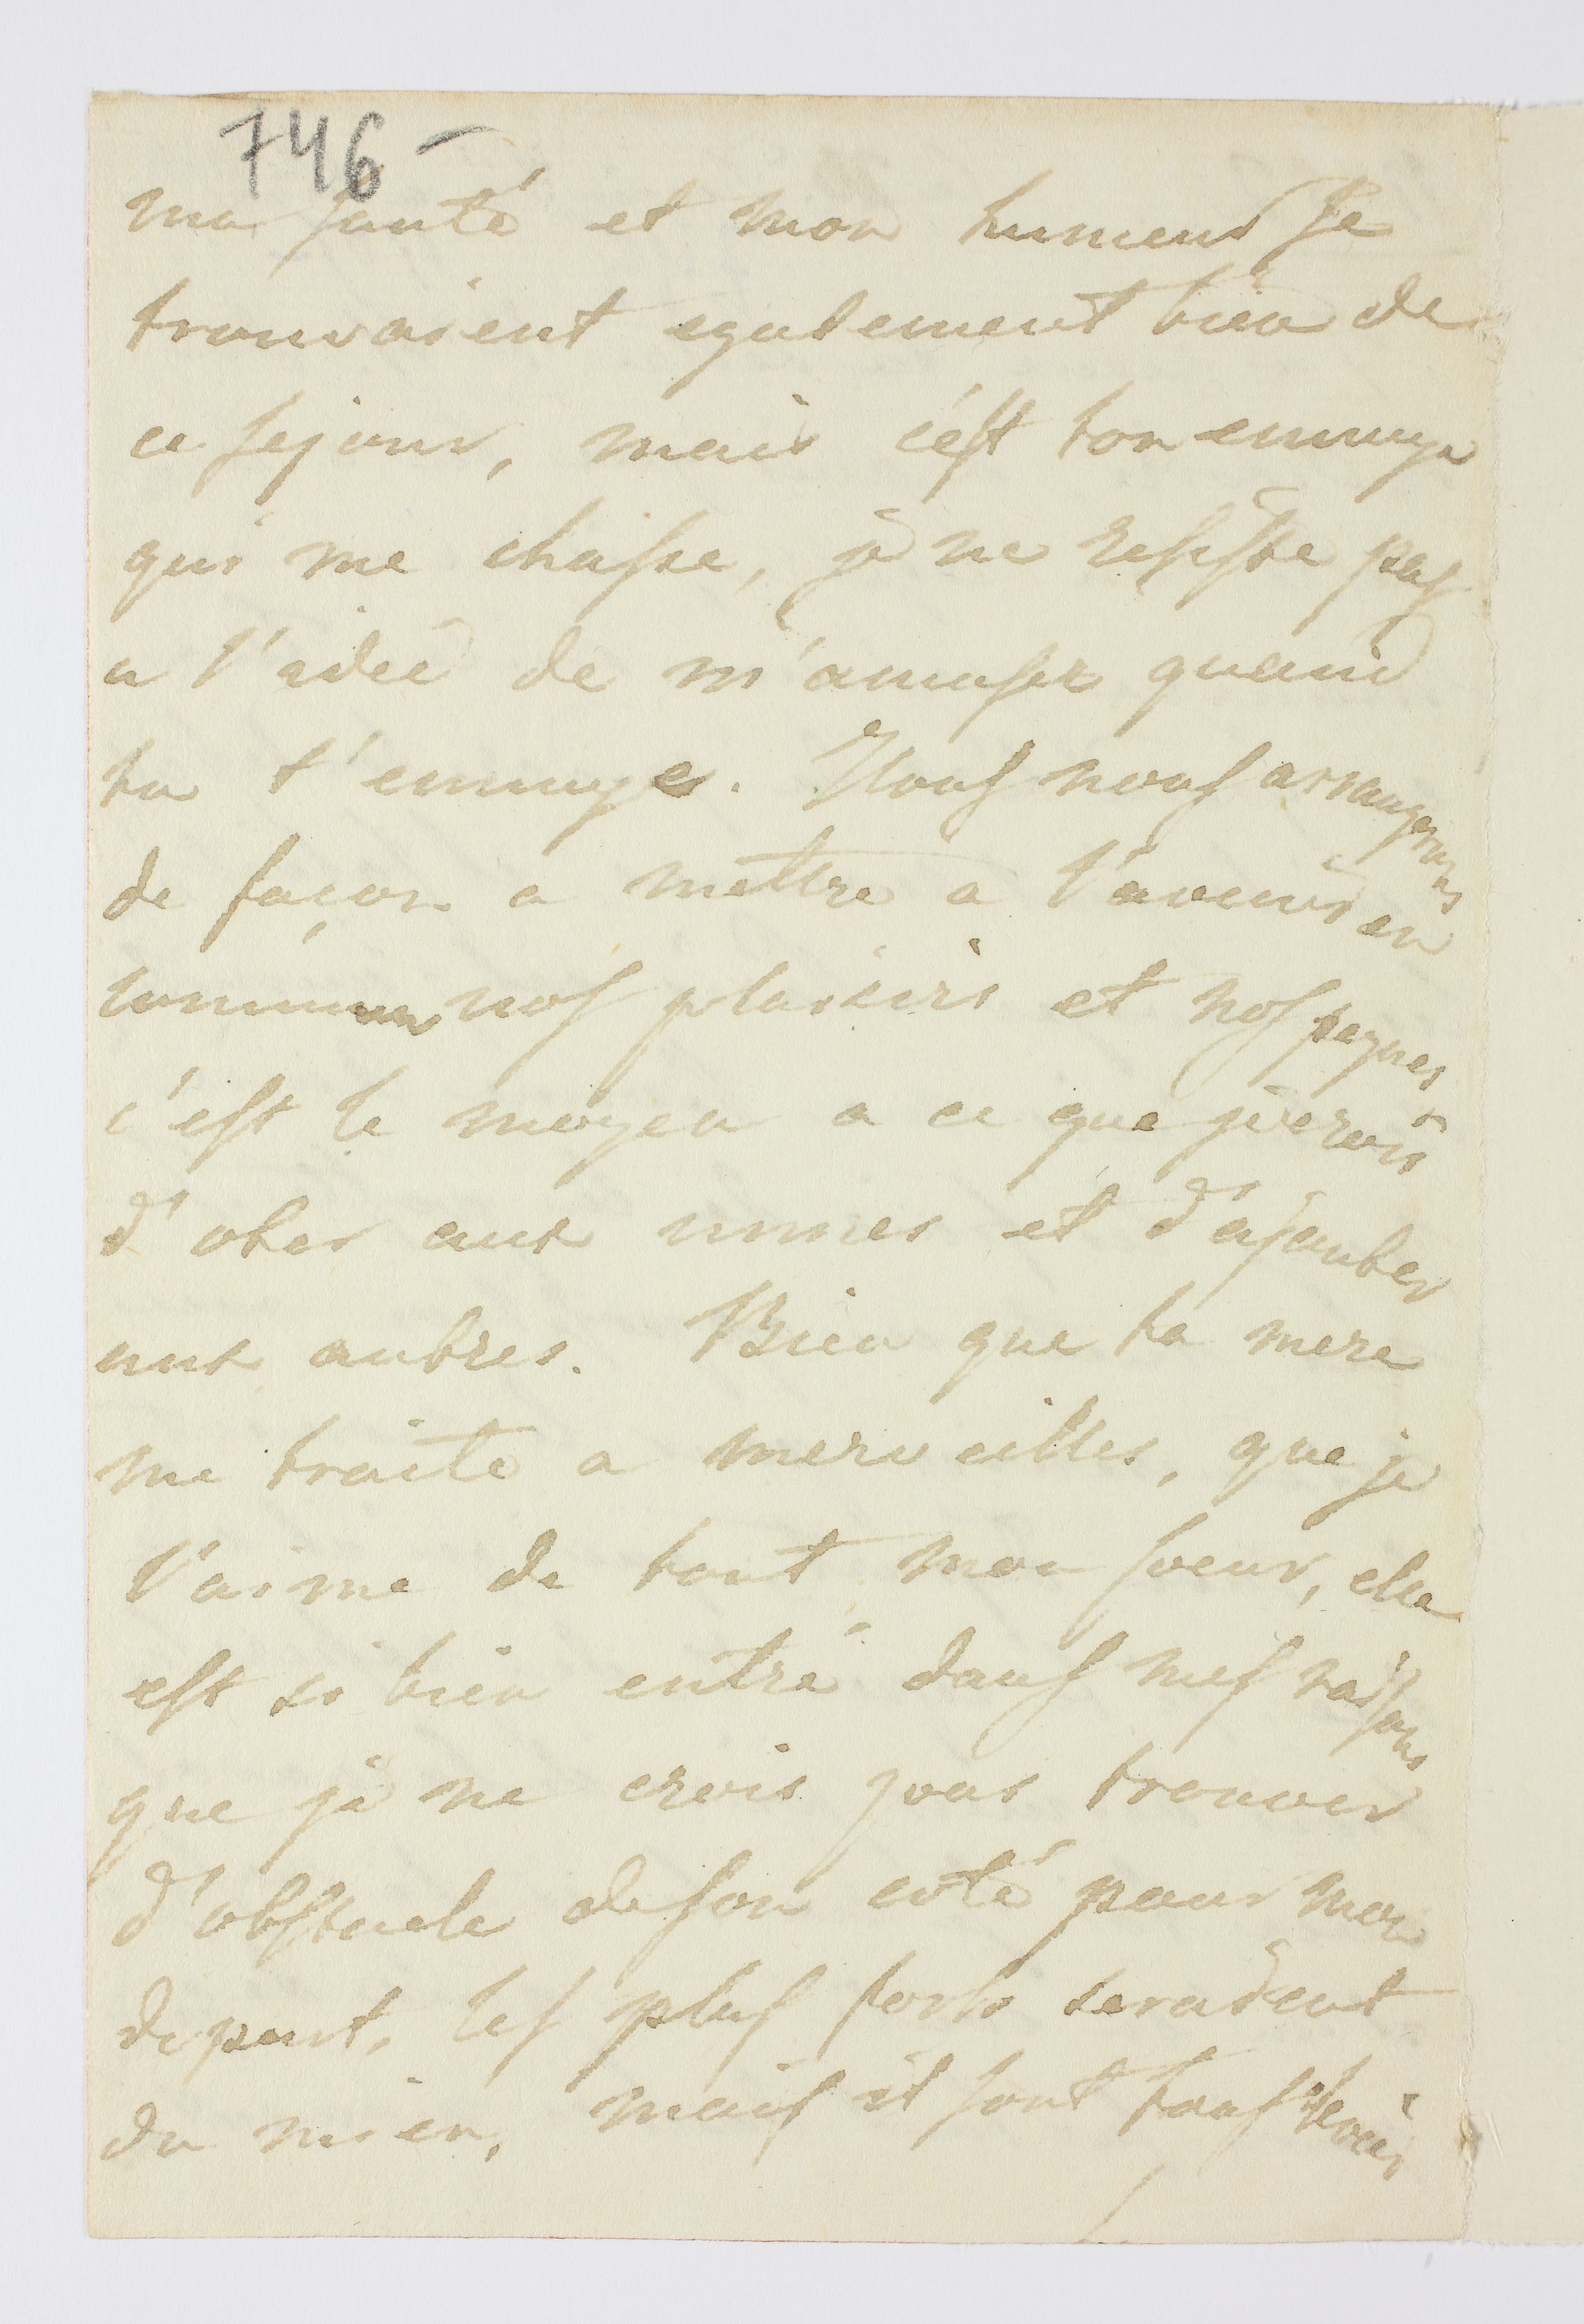 746 -
ma santé et mon humeur se
trouvaient egalement bien de
ce sejour, mais c'est ton ennuye
qui me chasse, je ne resiste pas
a l'idée de m'amuser quand
tu t'ennuye. Nous nous arrangerons
de façon a mettre a l'avenir en
commun nos plaisirs et nos peynes
c'est le moyen a ce que je crois
d'oter aux unnes et d'ajouter
aux autres. Bien que ta mere
me traite a merveilles, que je
l'aime de tout mon coeur, elle
est si bien entré dans mes raisons
que je ne crois pas trouver
d'obstacle de son coté pour mon
depart, les plus forts seraient
du mien, mais il sont tous